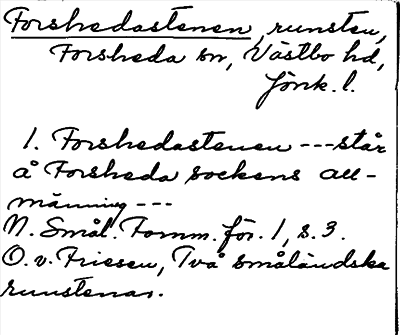 Forshedastenen, runsten,
Forsheda sn, Västbo hd,
Jönk. l.
1. Forshedastenen --- står
å Forsheda sockens all-
männing ---
N. Smål. Fornm. för. 1, s. 3.
O. v. Friesen, Två småländska
runstenar.